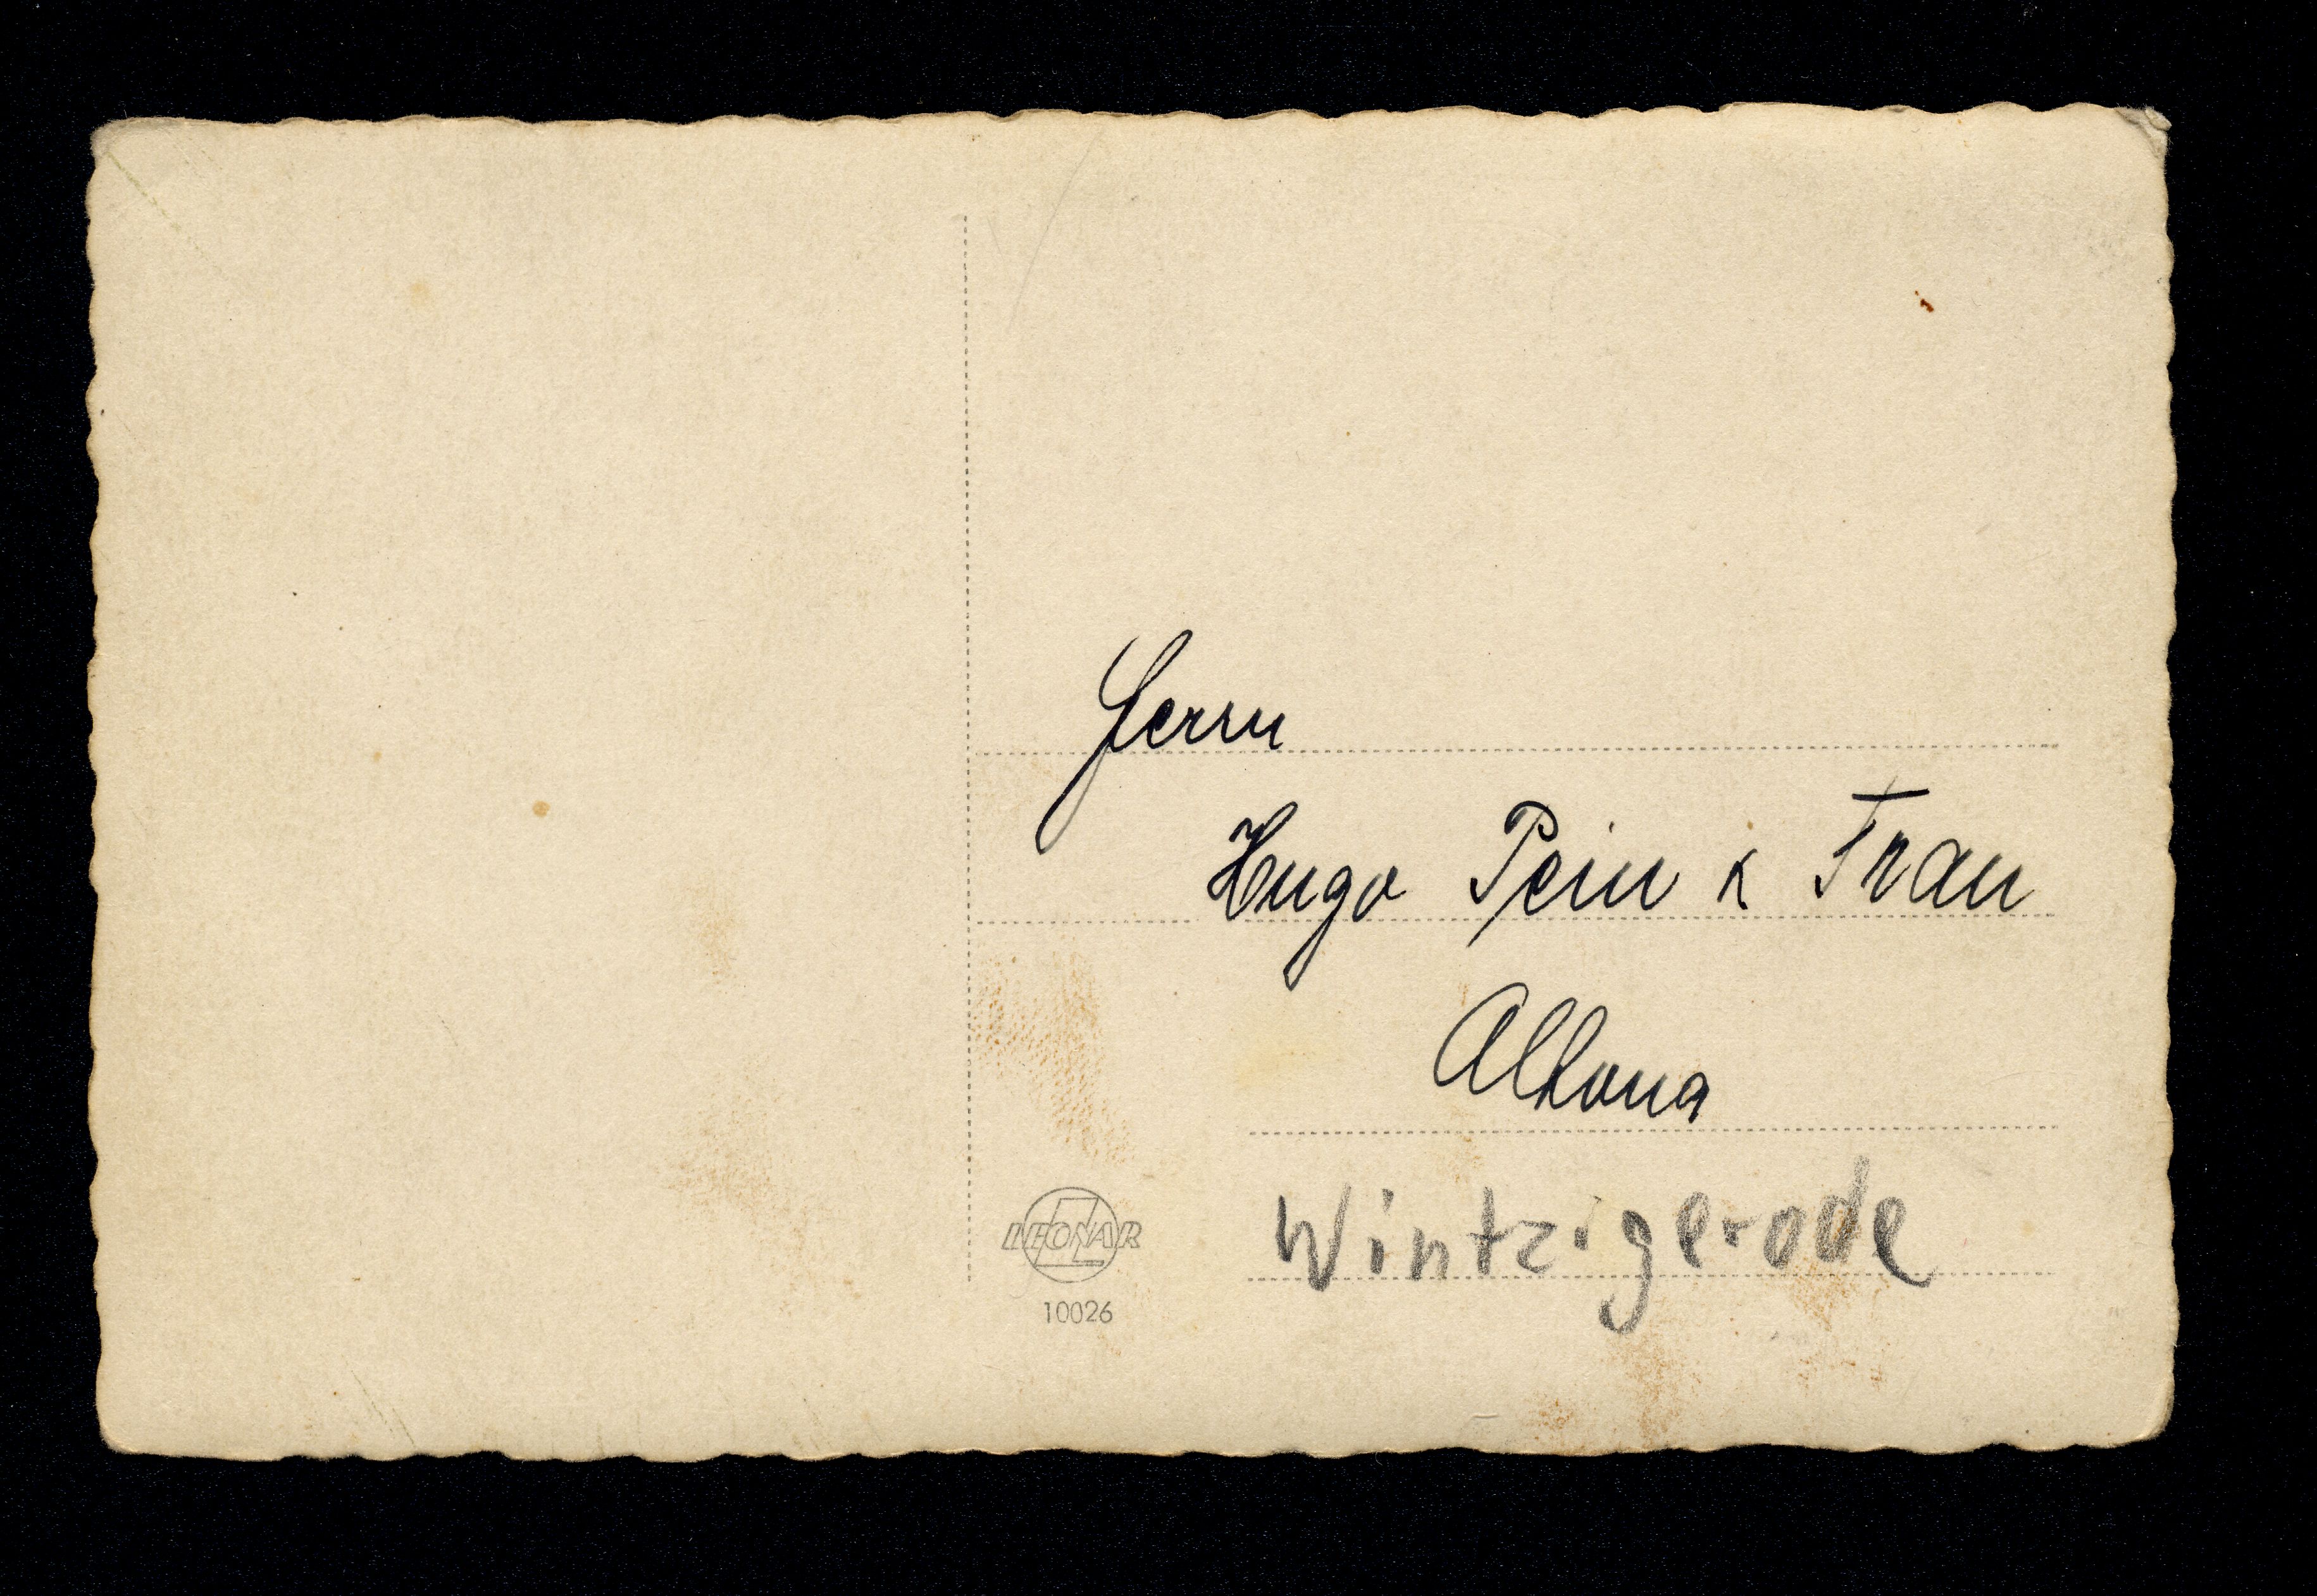 Herrn
Hugo Pein & Frau
Altona
Wintzigerode
LEONAR
10026